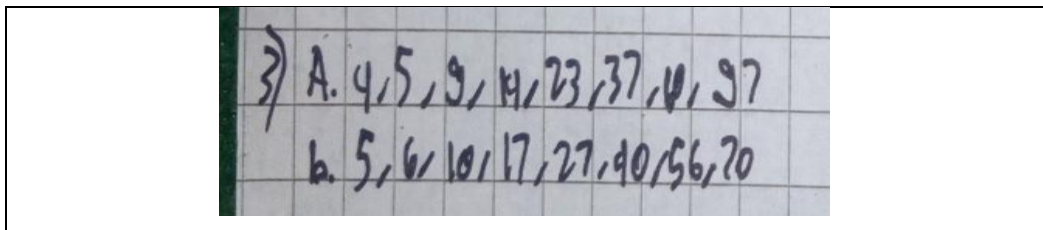 3) A. 4, 5, 9, 14, 23, 37, 97
b. 5, 6, 10, 17, 27, 40, 56, 70